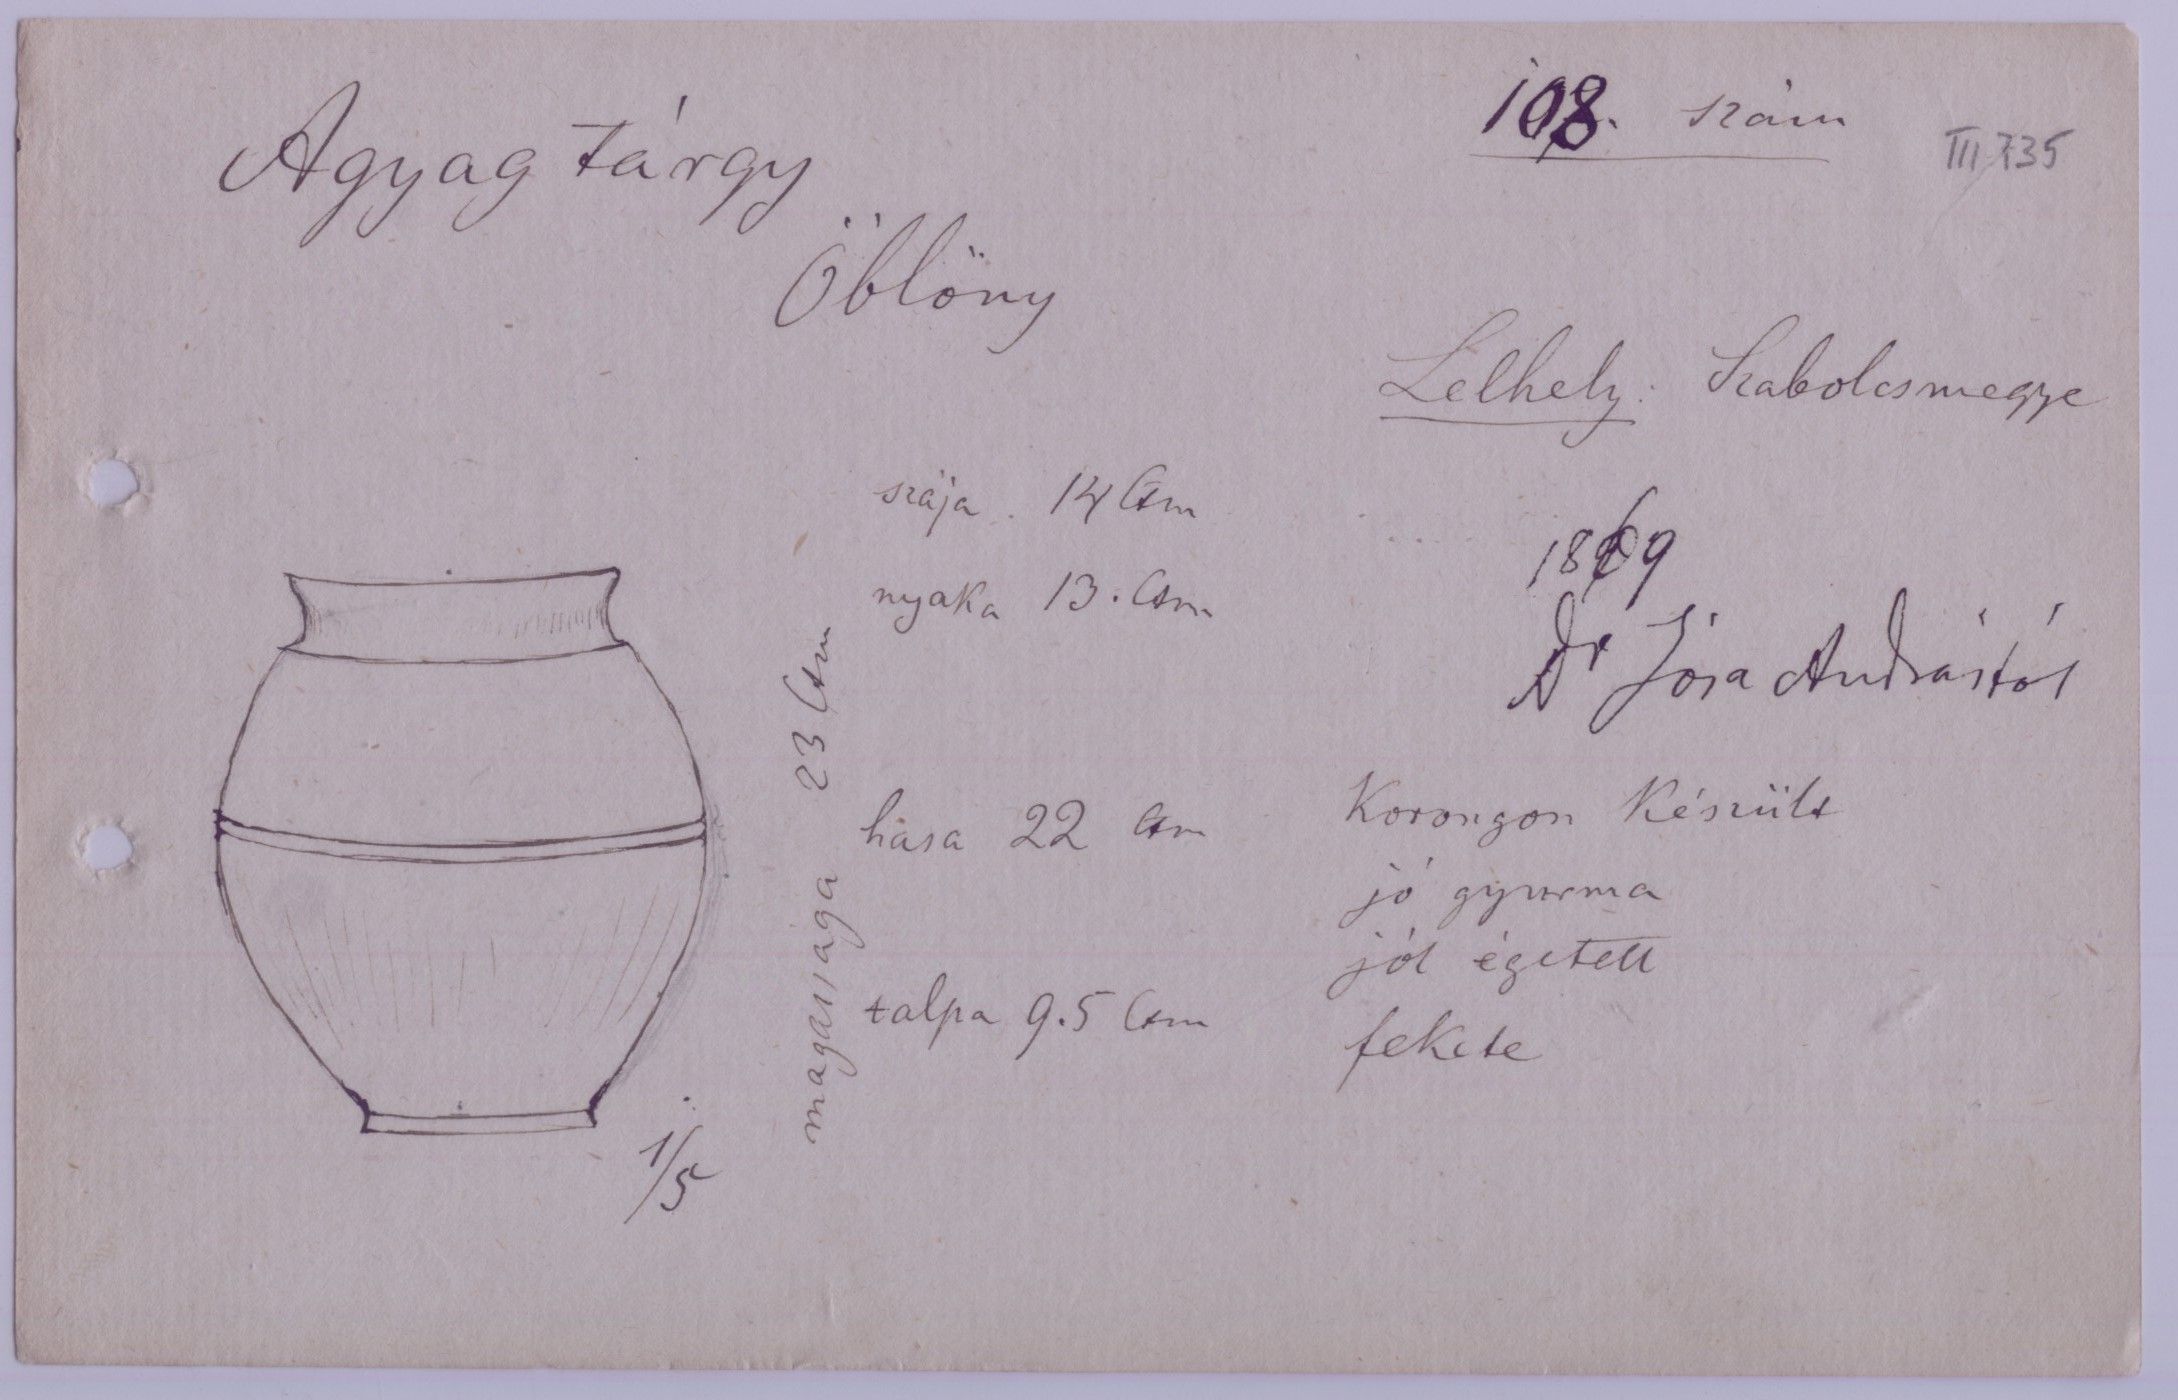 108. szám
III 735
Agyag tárgy
Öblöny
Lelhely: Szabolcsmegye
szája 14 Ctm
nyaka 13. Ctm
1869
Dr Jósa Andrástól
magassaga 23 Ctm
hasa 22 Ctm
talpa 9.5 Ctm
Korongon Készült
jó gyurma
jól égetett
fekete
1/5